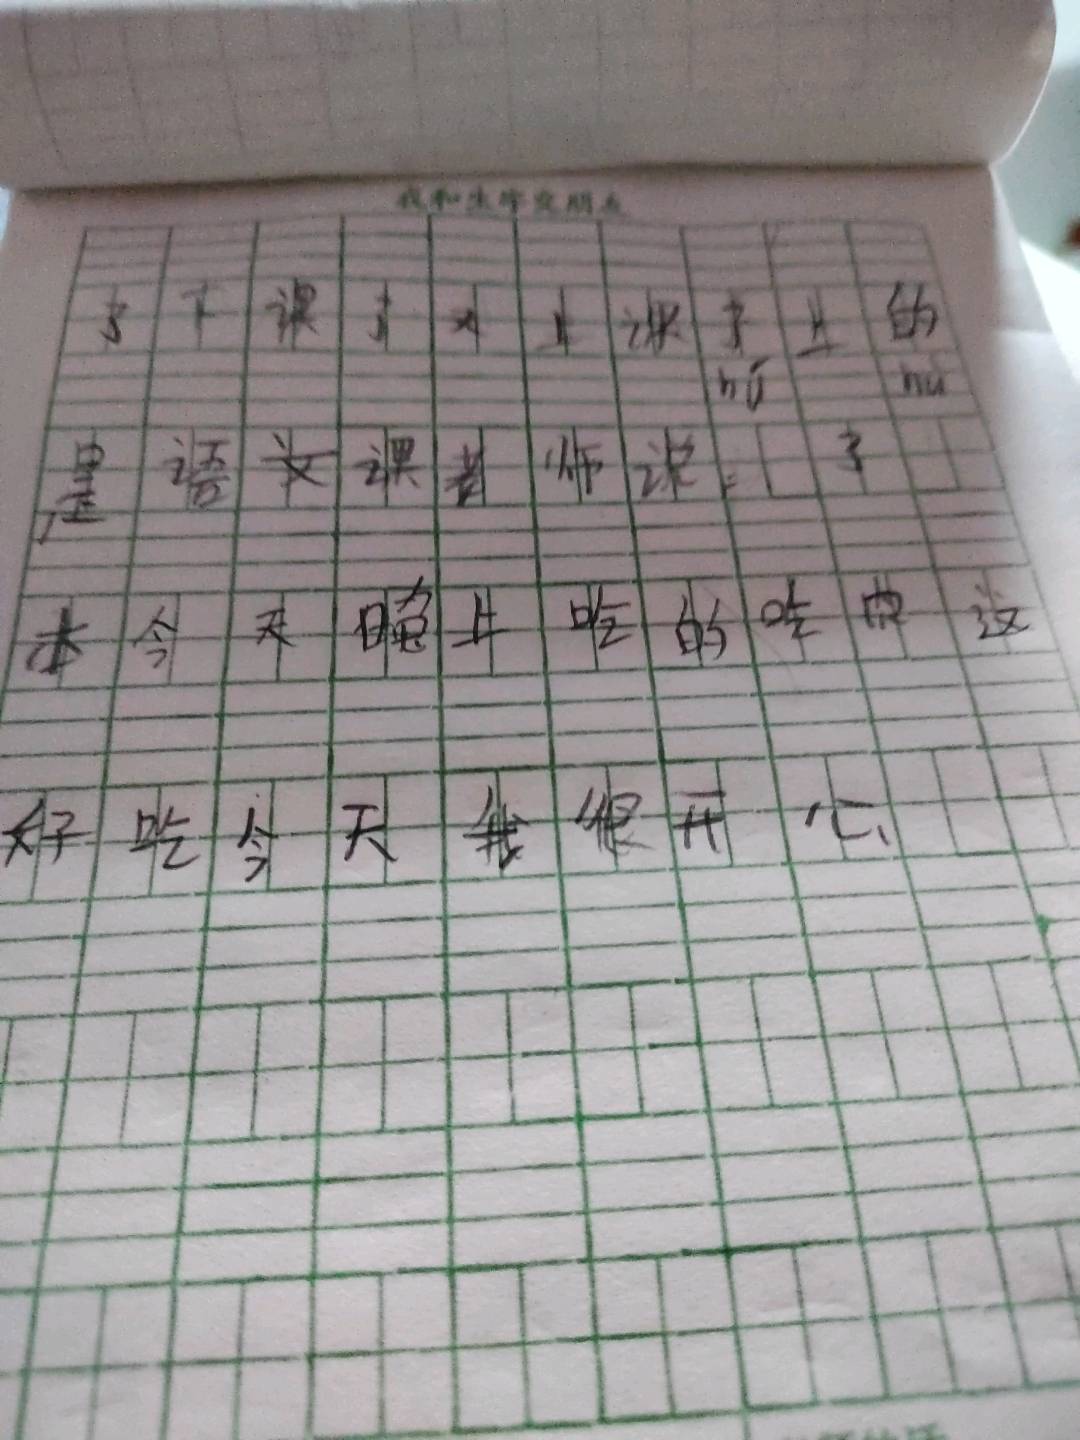 我和生字交朋友
了下课了又上课了上的
nǔ nu
是语文课老师说：了
本今天晚上吃的吃 这
好吃今天我很开心